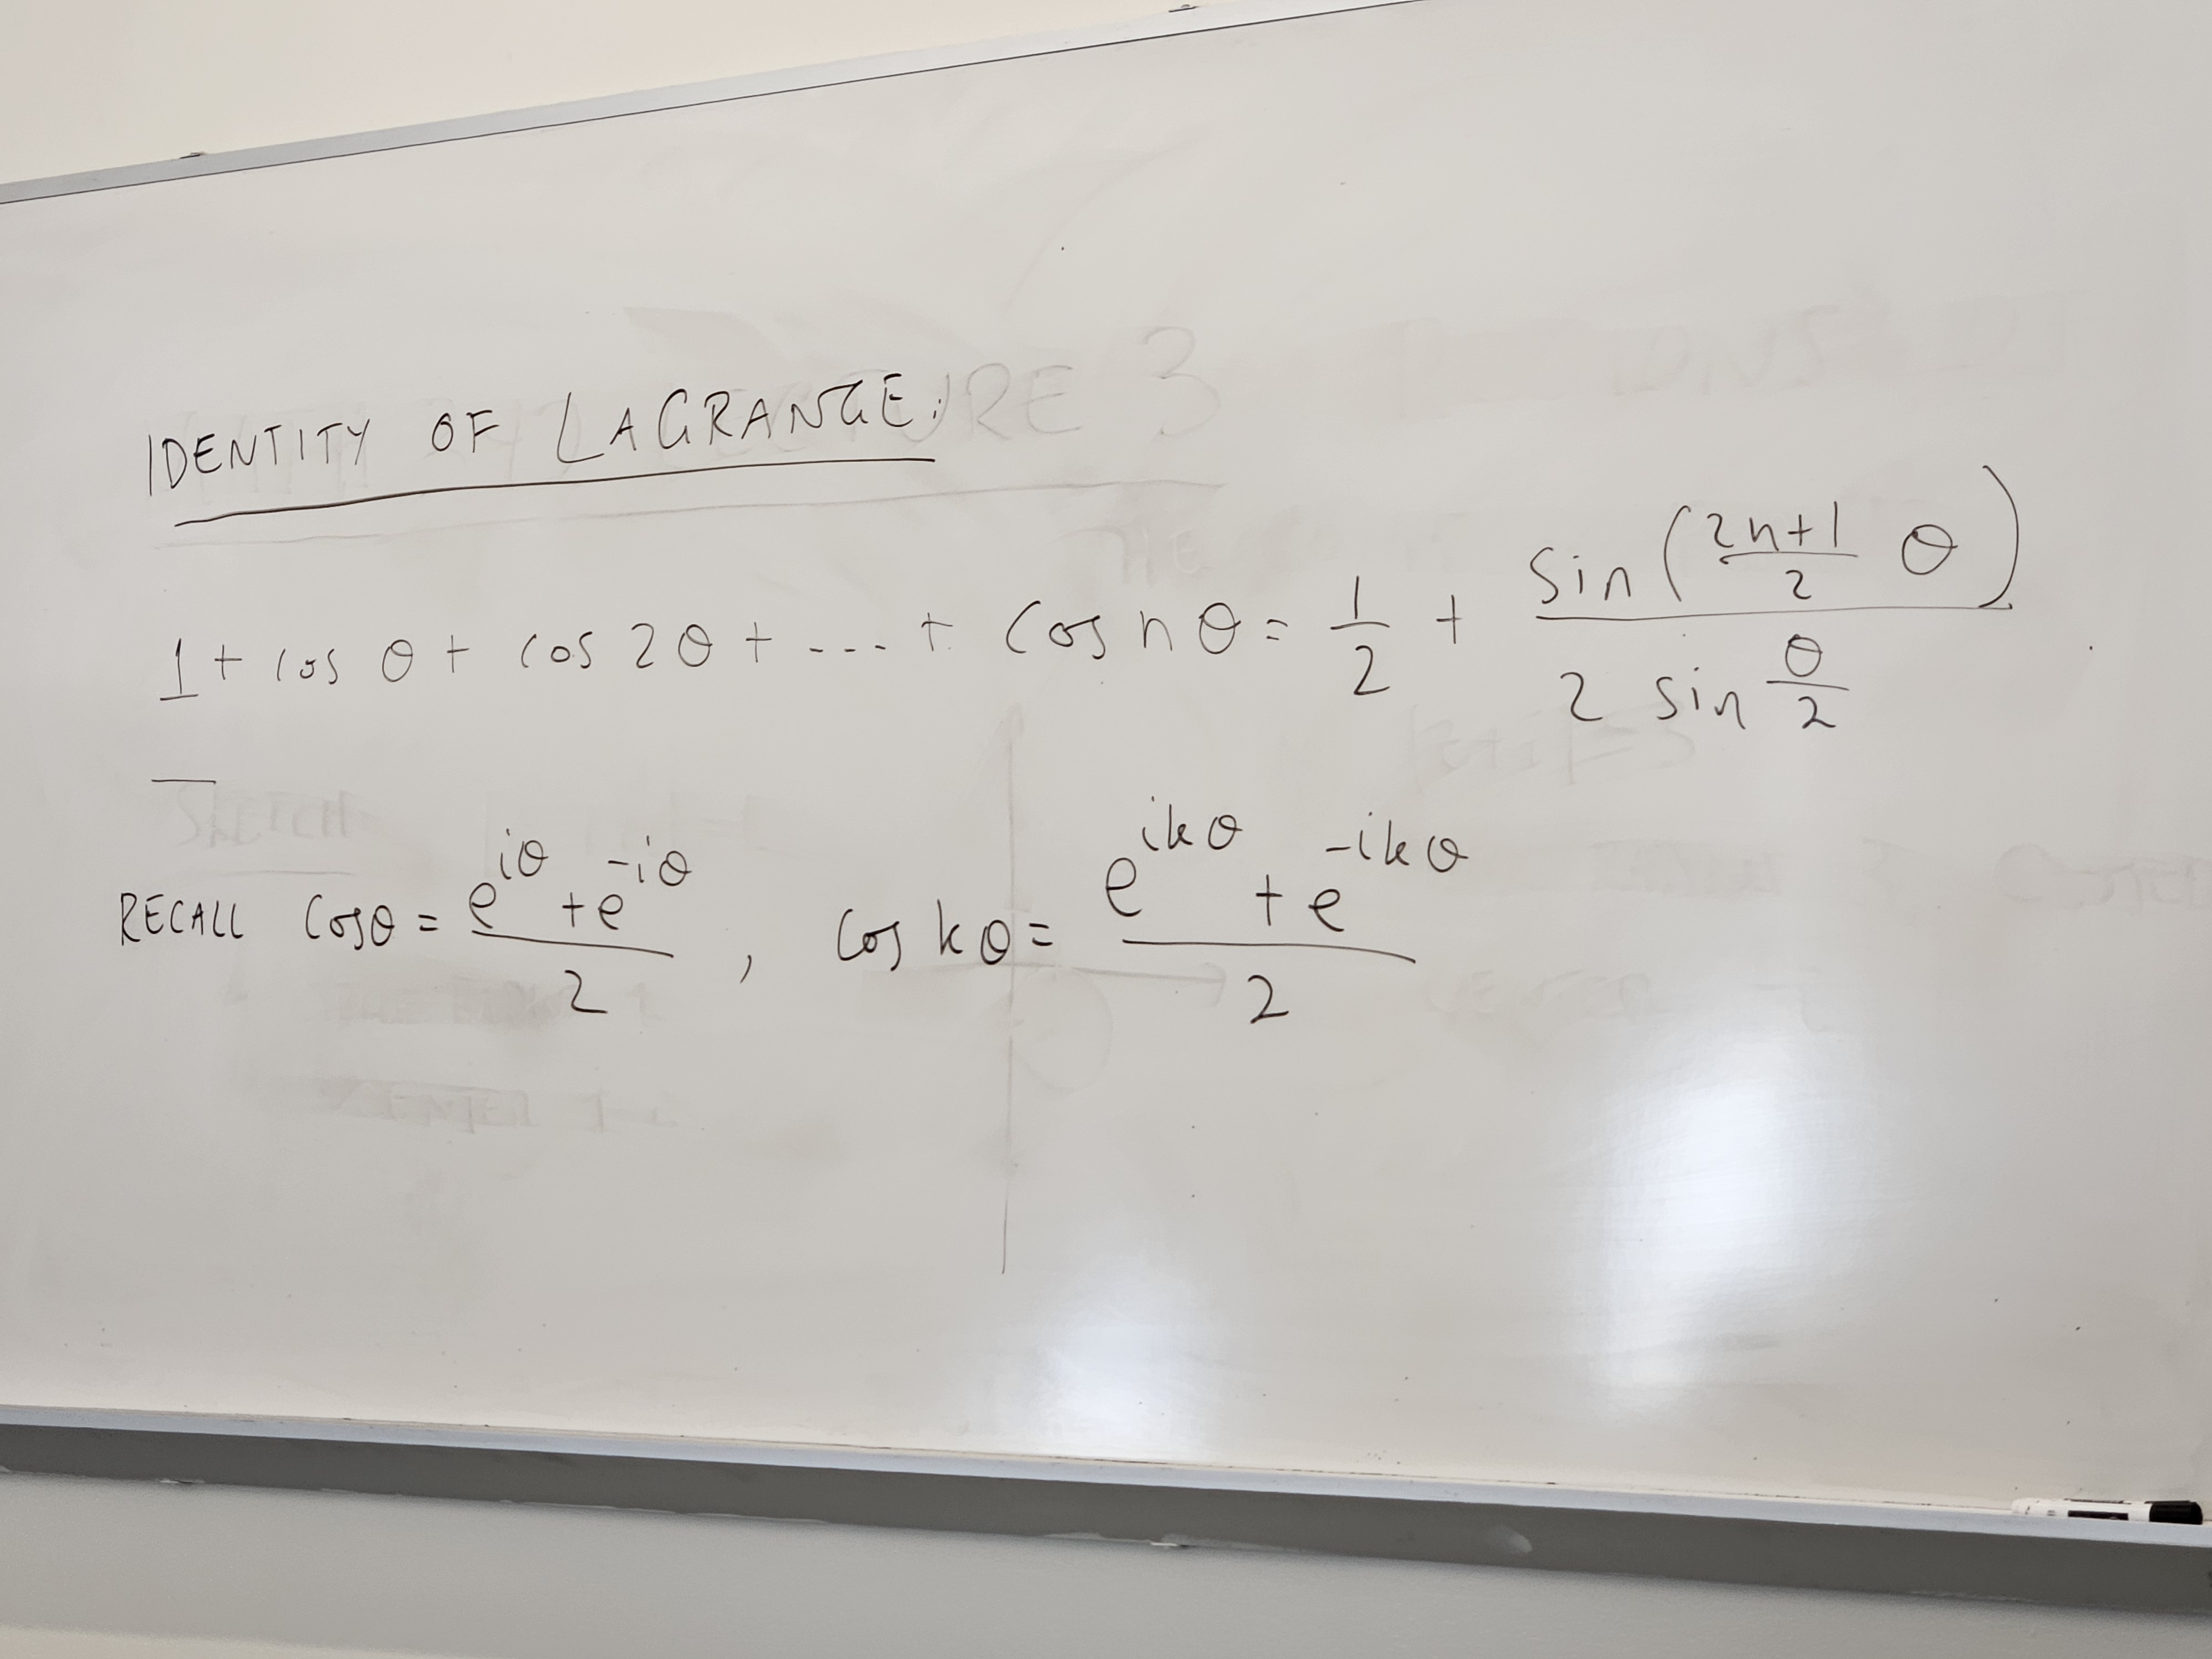 IDENTITY OF LAGRANGE:
1 + cos θ + cos 2θ + ... + cos nθ = 1/2 + sin((2n+1)/2 θ) / (2 sin θ/2)
RECALL cosθ = (e^{iθ} + e^{-iθ})/2 , cos kθ = (e^{ikθ} + e^{-ikθ})/2